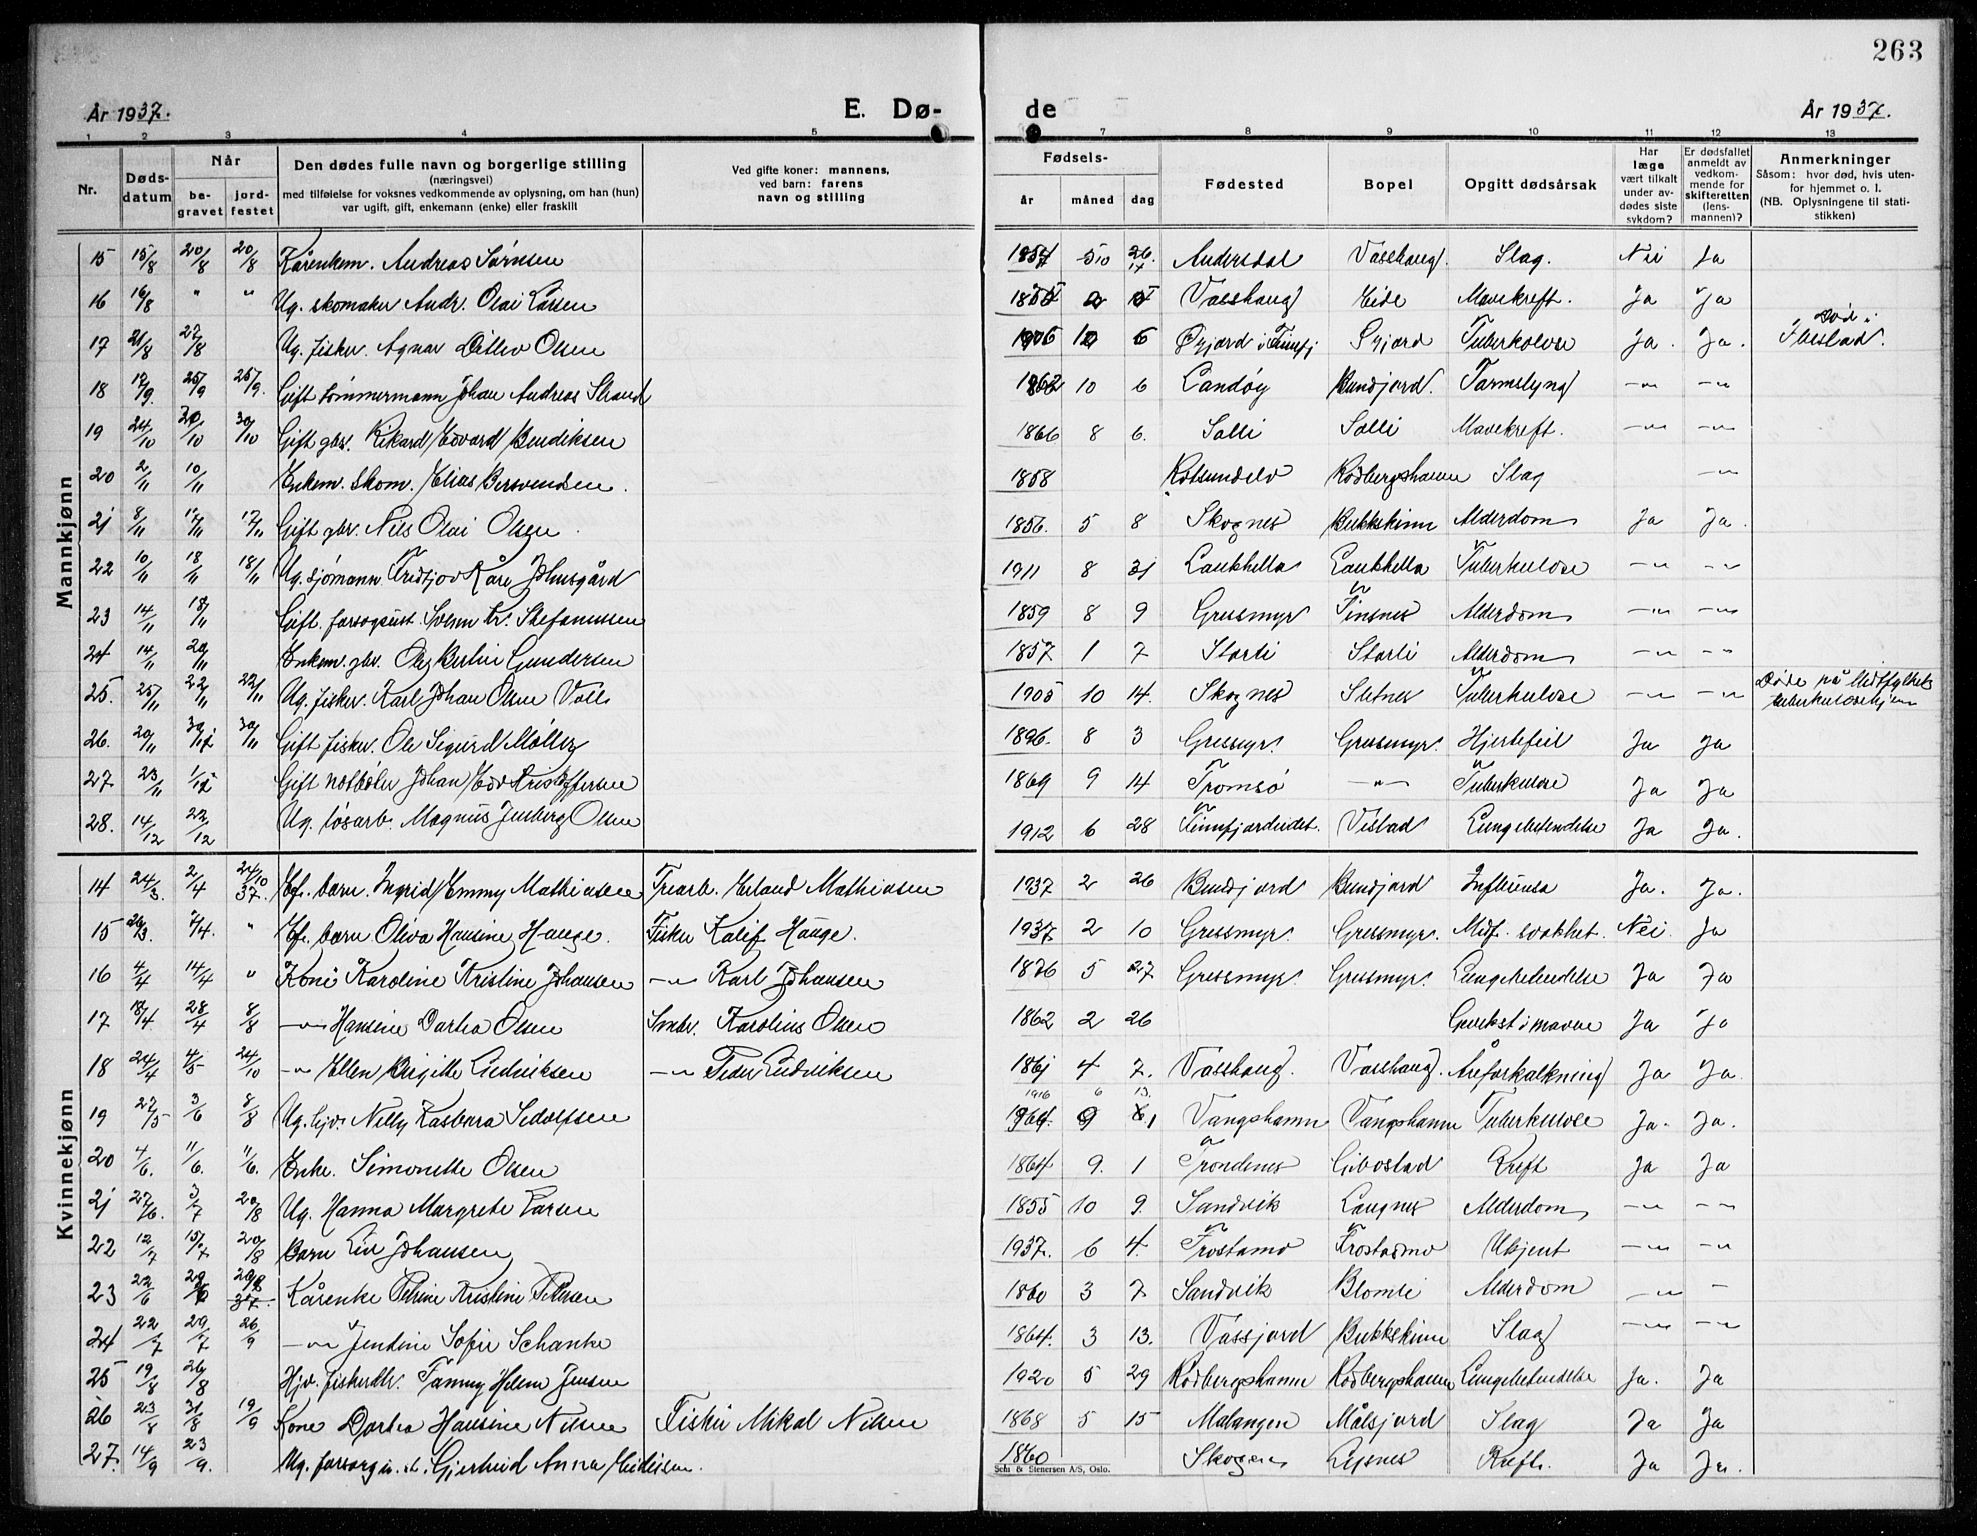 263
År 1937. E. Dø- de År 1937.
1 2 3 4 5 7 8 9 10 11 12 13
Nr. Døds-datum Når begravet jordfestet Den dødes fulle navn og borgerlige stilling (næringsvei) med tilføielse for voksnes vedkommende av oplysning, om han (hun) var ugift, gift, enkemann (enke) eller fraskilt Ved gifte koner: mannens, ved barn: farens navn og stilling Fødsels- år måned dag Fødested Bopel Opgitt dødsårsak Har læge vært tilkalt under avdødes siste sykdom? Er dødsfallet anmeldt av vedkommende for skifteretten (lensmannen)? Anmerkninger Såsom: hvor død, hvis utenfor hjemmet o. l. (NB. Oplysningene til statistikken)
Mannkjønn
15 15/8 20/8 20/8 Kårenkem. Andreas Sørnsen Andersdal Vasshaug Slag. Nei Ja
16 16/8 " " Ug. skomaker Andr. Olai Larsen Vasshaug Eide Mavekreft. Ja Ja
17 21/8 27/8 Ug. fisker. Agnar Ditlev Olsen 1906 10 6 Tuberkolose Ja. Ja. Død i Ibestad.
18 25/9 25/9. Gift tømmermann Johan Andreas Strand 1862 10 6 Landøy Bundjord. Tarmslyng -"- -"-
19 24/10 30/10 30/10 Gift gbr. Rikard Edvard Bendiksen 1866 8 6. Solli Solli Mavekreft. -"- -"-
20 2/11 10/11 Enkem. skom. Elias Bersvendsen. 1858 Rotsundelv Rødbergshamn Slag -"-
21 8/11 17/11 17/11 Gift gbr. Nils Olai Olsen. 1856. 5 8 Skognes Bukkskinn Alderdom Ja Ja.
22 10/11 18/11 18/11 Ug. sjømann Fredtjov Kåre Johnsgård 1911 8 31 Laukhella Laukhella Tuberkulose -"- -"-
23 14/11 18/11 Gift. forsogsust. Stefanussen 1859 8 9 Gressmyr Finsnes Alderdom -"- -"-
24 14/11 20/11 Enkem. gbr. Ole Bertin Gundersen 1857 1 7 Storli Storli Alderdom -"- -"-
25. 25/11 22/11 22/11 Ug. fisker. Karl Johan Olsen Voll 1905 10 14. Skognes Sletnes Tuberkulose -"- -"- Døde på Midtfylkets tuberkulosehjem
26. 20/11 30/11 30/11 Gift fisker. Ole Sigurd Møller 1896. 8 3 Gressmyr. Gressmyr. Hjertefeil Ja Ja
27. 23/11 1/12 Gift notbøter Johan Edv Kristoffersen 1869 9 14 Tromsø -"- Tuberkulose Ja Ja
28. 14/12 22/12 Ug. løsarb. Magnus Olsen 1912 6 28 Finnfjordeidet. Vistad Lungebetendelse Ja Ja.
Kvinnekjønn
14 24/3. 2/4 24/10 37. Ef. barn. Ingrid Emmy Mathiasen Trearb. Erland Mathiasen 1937 2 26 Bundjord Bundjord Influensa Ja. Ja.
15 26/3. 7/4. " Ef. barn Oliva Hansine Hauge. Fisker Kalif Hauge. 1937. 2 10 Gressmyr. Gressmyr. Medf. svakhet. Nei. Ja
16 4/4 14/4 " Kone Karoline Kristine Johansen -"- Karl Johansen 1876 5 27 Gressmyr. Gressmyr. Lungebetendelse Ja Ja
17 18/4. 28/4 8/8 -"- Hansine Dortea Olsen Smbr. Karolius Olsen 1862 2 26 Gvekst i mavne Ja Ja
18 24/4 4/5 24/10 -"- Ellen Birgitte Ludviksen -"- Peder Ludviksen 1861 4 7. Vasshaug. Vasshaug. Åreforkalkning Ja Ja.
19 27/5 3/6 8/8 Ug. hjv. Nelly Kasbara Sedolfsen 1916 6 13. 1864. 9 1 Vangshamn Vangshamn Tuberkulose Ja. Ja.
20 4/6. 11/6. 11/6. Enke. Simonette Olsen 1864 9. 1 Trondenes Gibostad Kreft Ja Ja
21 27/6. 3/7 20/8 Ug. Hanna Margrete Larsen 1855 10 9. Sandvik Laugnes Alderdom -"- -"-
22 12/7 15/7 20/8 Barn Liv Johansen 1937. 6 4. Frostamo Frostadmo Ukjent -"- -"-
23 22/6 37. Kårenke Petrine Kristine Petersen 1860 3 7 Sandvik Blomli Alderdom -"- -
24 22/7 29/7 26/9 -"- Jendine Sofie Schanke 1864. 3 13. Vassjord Bukkskinn Slag -"- -"-
25 19/8 26/8 Hjv. fiskerdtr. Fanny Helene Jensen 1920 5 29 Rødbergshamn Rødbergshamn Lungebetendelse Ja. Ja
26 23/8 31/8 19/9 Kone Dortea Hansine Nilsen Fisker Mikal Nilsen 1868 5 15 Malangen Målsjord Slag Ja Ja
27. 14/9 23/9. Ug. Gjertrud Anna 1860 Skogen Kreft. Ja Ja.
Sem & Stenersen A/S, Oslo.